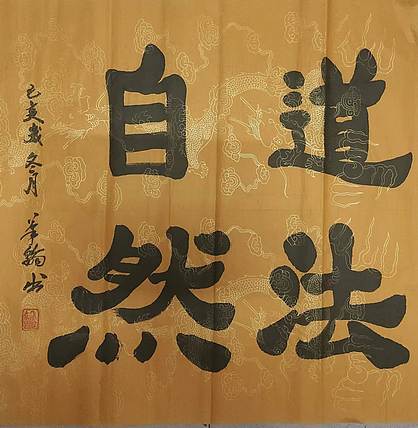 道法
自然
己亥歲冬月